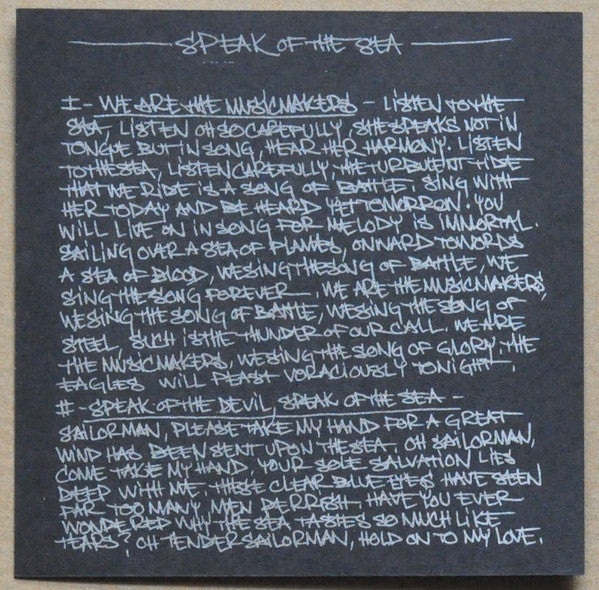 SPEAK OF THE SEA
I - WE ARE THE MUSICMAKERS - LISTEN TO THE
SEA, LISTEN OH SO CAREFULLY, SHE SPEAKS NOT IN
TONGUE BUT IN SONG, HEAR HER HARMONY. LISTEN
TO THE SEA, LISTEN CAREFULLY, THE TURBULENT TIDE
THAT WE RIDE IS A SONG OF BATTLE. SING WITH
HER TODAY AND BE HEARD YET TOMORROW. YOU
WILL LIVE ON IN SONG FOR MELODY IS IMMORTAL.
SAILING OVER A SEA OF FLAMES, ONWARD TOWORDS
A SEA OF BLOOD, WE SING THE SONG OF BATTLE, WE
SING THE SONG FOREVER. WE ARE THE MUSICMAKERS,
WE SING THE SONG OF BATTLE, WE SING THE SONG OF
STEEL, SUCH IS THE THUNDER OF OUR CALL. WE ARE
THE MUSICMAKERS, WE SING THE SONG OF GLORY. THE
EAGLES WILL FEAST VORACIOUSLY TONIGHT.
II - SPEAK OF THE DEVIL, SPEAK OF THE SEA -
SAILORMAN, PLEASE TAKE MY HAND FOR A GREAT
WIND HAS BEEN SENT UPON THE SEA. OH SAILORMAN,
COME TAKE MY HAND, YOUR SOLE SALVATION LIES
DEEP WITH ME. THESE CLEAR BLUE EYES HAVE SEEN
FAR TOO MANY MEN PERRISH. HAVE YOU EVER
WONDERED WHY THE SEA TASTES SO MUCH LIKE
TEARS? OH TENDER SAILORMAN, HOLD ON TO MY LOVE.